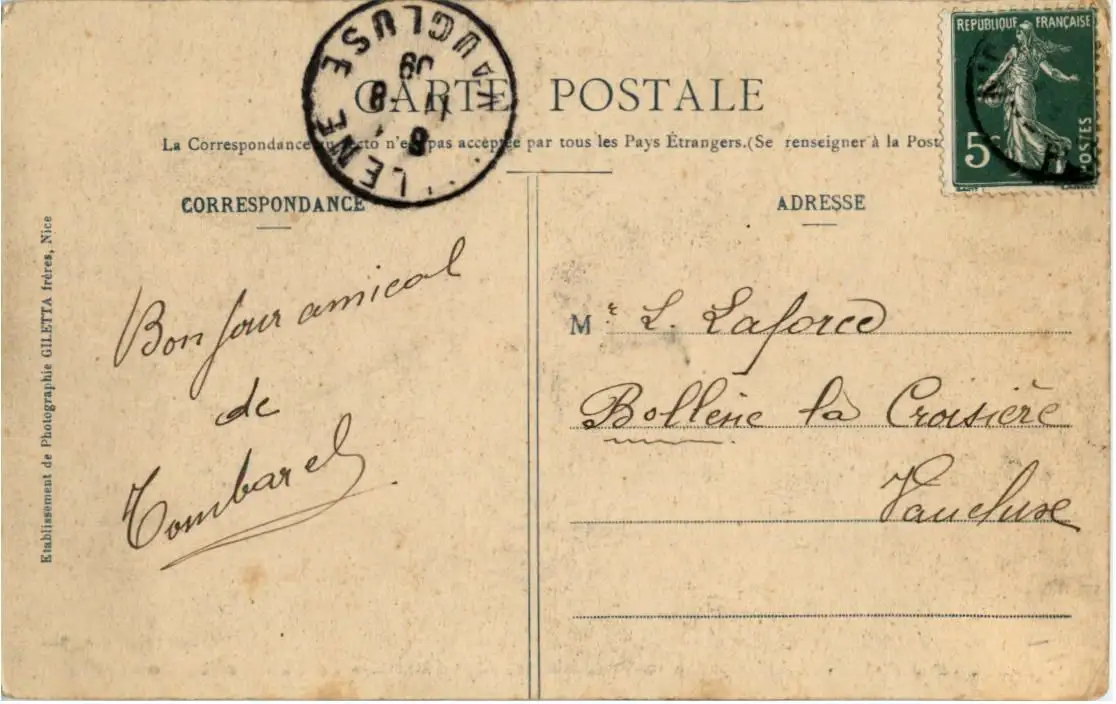 CARTE POSTALE
La Correspondance au recto n'est pas acceptée par tous les Pays Étrangers.(Se renseigner à la Post
RÉPUBLIQUE FRANÇAISE
5c
POSTES
VAUCLUSE
LENE
09
CORRESPONDANCE
ADRESSE
Bonjour amical
de
Tombarel
Mr. L. Laforce
Bollène la Croisière
Vaucluse
Etablissement de Photographie GILETTA frères, Nice